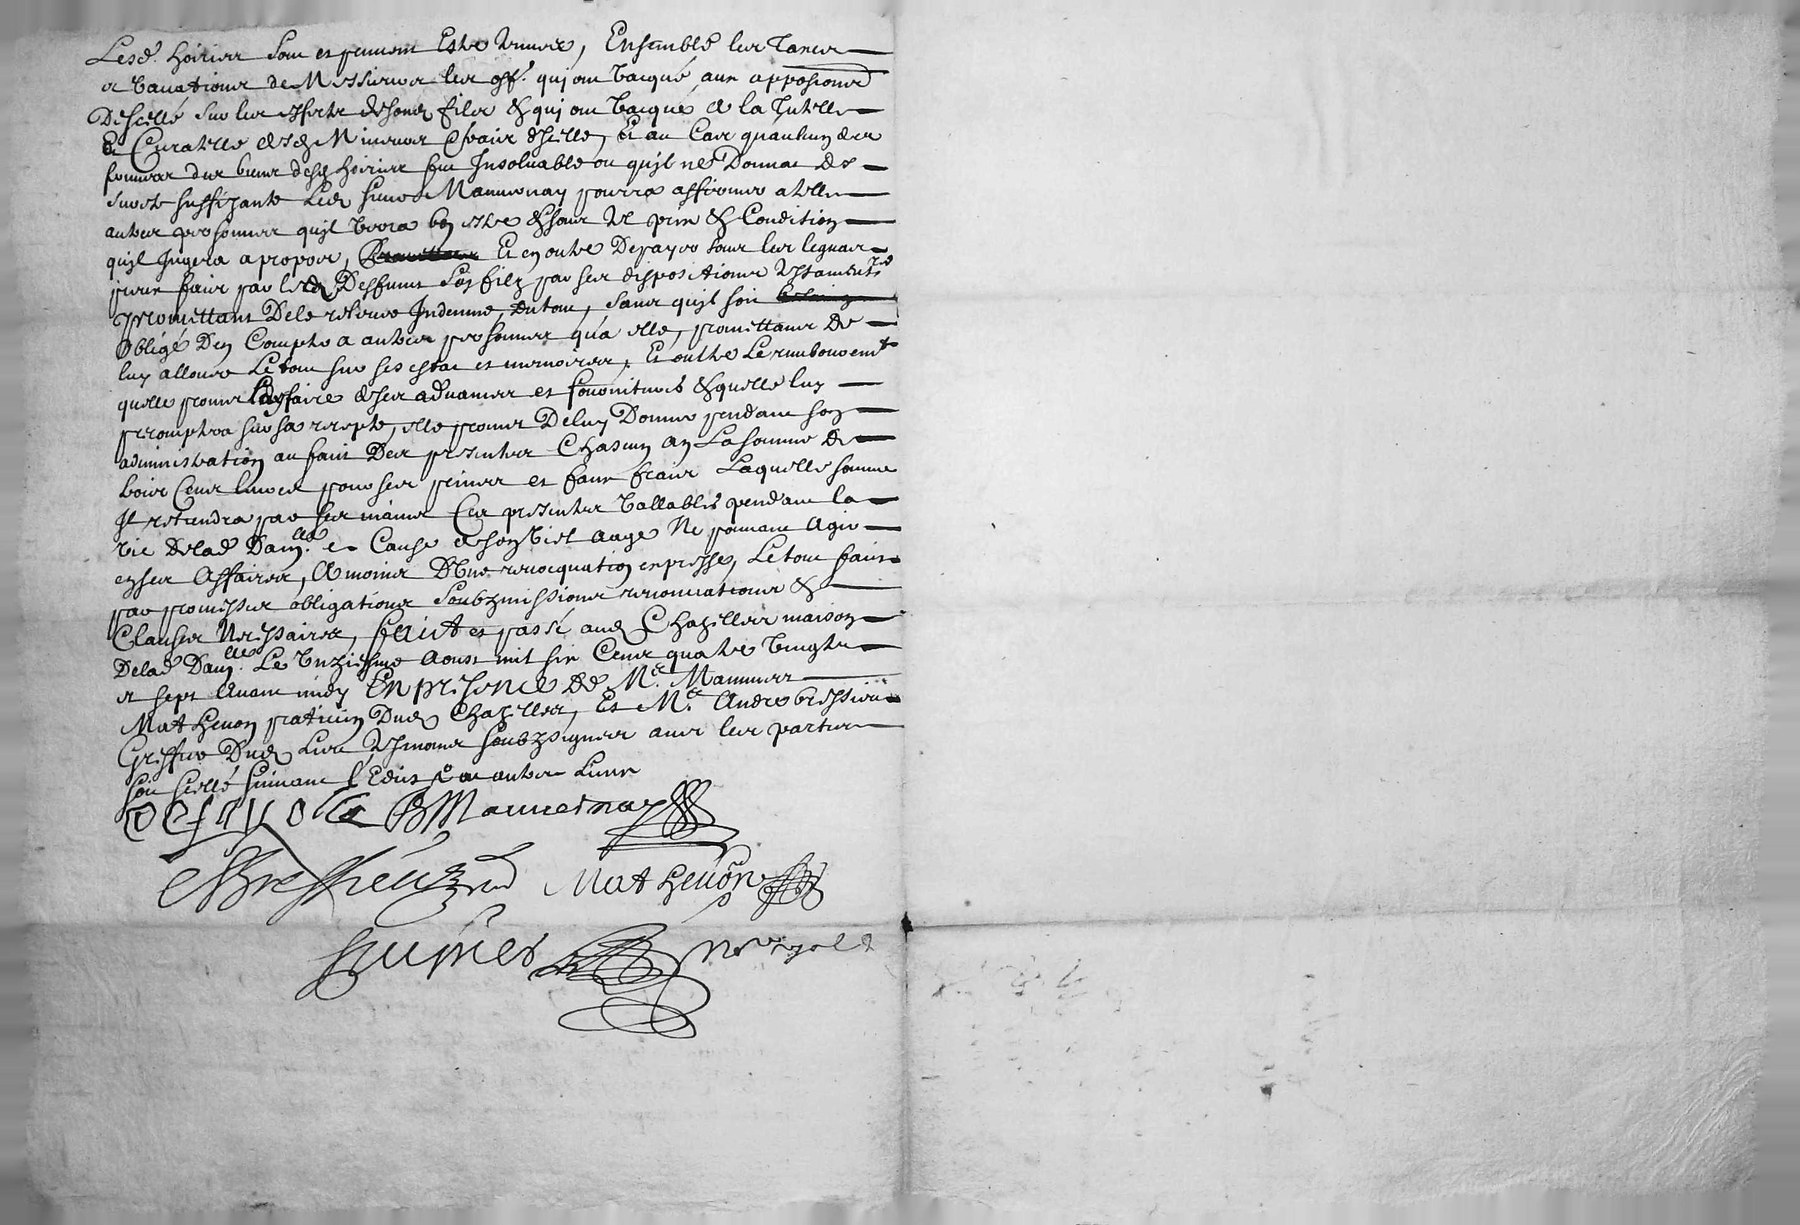 Lesd. hoirier sont et peuvent Estre tenuer, Ensemble ler Taxer
et Vacationer de Messieurer ler off.r qui ont Vacqué aux appositioner
De scellé sur ler effectz desond filz & qui ont Vacqué a la Tutelle
Et Curatelle desd Mineurer frair diselle, Et au Car quaulcun der
fermier der biener desd hoirier fut Insoluable ou quil ne Donnat de
Surete suffizante Led sieur Mannesnay pourra affermer a telle
autrer personner quil Verra bon estre & soubz tel prix & Condition
quil Jugera apropor, Et en outre De payer tour ler legatz
pieux fair par led Deffunt Son filz par ser dispositioner Testament.res
Promettant De le relever Indemne, du tout, sanr quil soit
Obligé Den Compter a autrer personner qua elle, promettant De
luy allouer Le tout sur ses estat et memoirer, Et outre Le remboursem.t
quelle promet luy faire deser aduancer et fournitures & quelle luy
promptera sur sa recepte, elle promet De luy Donner pendant son
administration au fait Der presenter Chascun an La somme de
troir Cent liurer pour ser peiner et faux frair Laquelle somme
Il retiendra par ser mainer Cer presenter Vallables pendant la
vie delad Dam.lle et Cause de son Viel aage Ne pouuant Agir
en ser Affairer, A moiner Dune reuocquation expresse, Le tout fait
par promesser obligationer Soubzmissioner renonciationer &
Clauser Necessairer, faict et passé aud Chazeller maison
Delad Dam.lle Le Unziesme Aoust mil six Cent quatre Vingtz
et sept Auant midy En presence de M.e Mammer
Mathevon praticien Dud Chazeller, Et M.e Andre bressieu
Greffier Dud Lieu tesmoner soubzsigner auec ler partier
soit scellé suiuant l'Edict et autre Lieux
Mannesnay
Bressieu
Mathevon